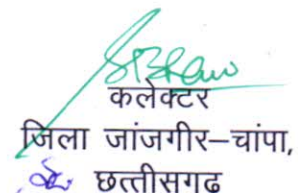 कलेक्टर
जिला जांजगीर–चांपा,
छत्तीसगढ़